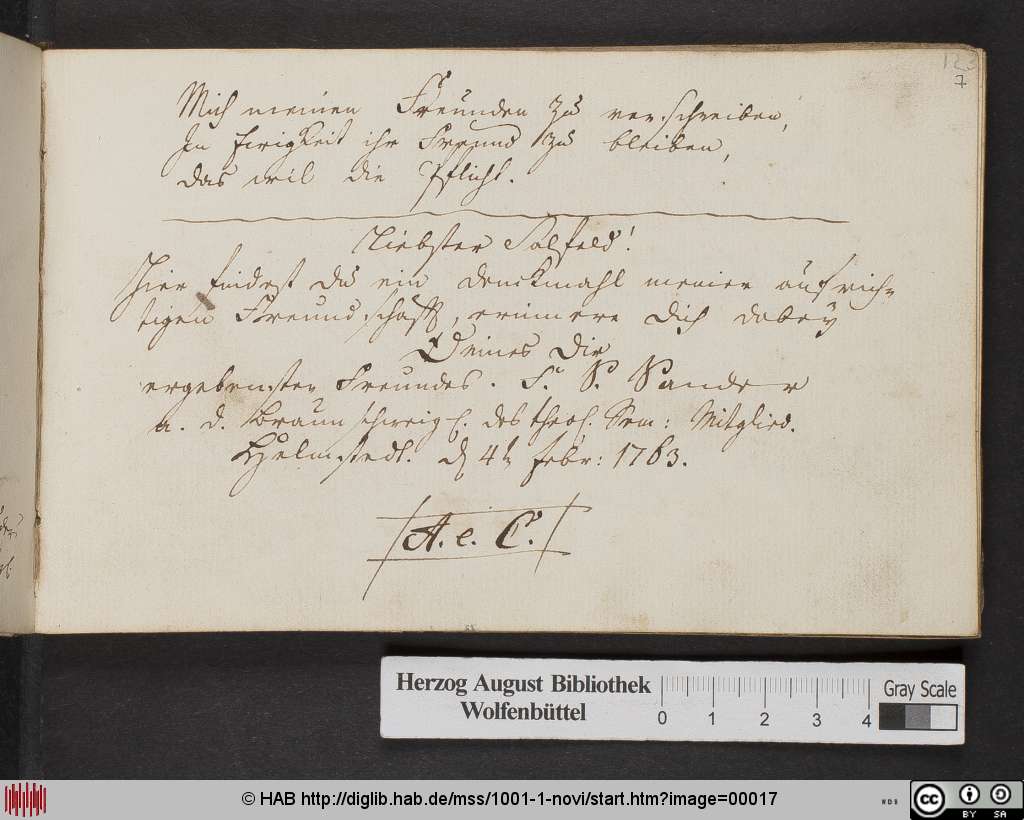 123
7
Mich meinen Freunden zu verschreiben,
In Ewigkeit ihr Freund zu bleiben,
das will die Pflicht.
Liebster Salfeld!
Hier findest Du ein Denckmahl meiner aufrich-
tigen Freundschafft, erinnere Dich dabey
Deines Dir
ergebensten Freundes. F. S. Sander
a. d. Braunschweig. des theol. Sem: Mitglied.
Helmstedt. d 4t Febr: 1763.
A. e. C.
Herzog August Bibliothek
Wolfenbüttel
0 1 2 3 4
Gray Scale
© HAB http://diglib.hab.de/mss/1001-1-novi/start.htm?image=00017
cc BY SA